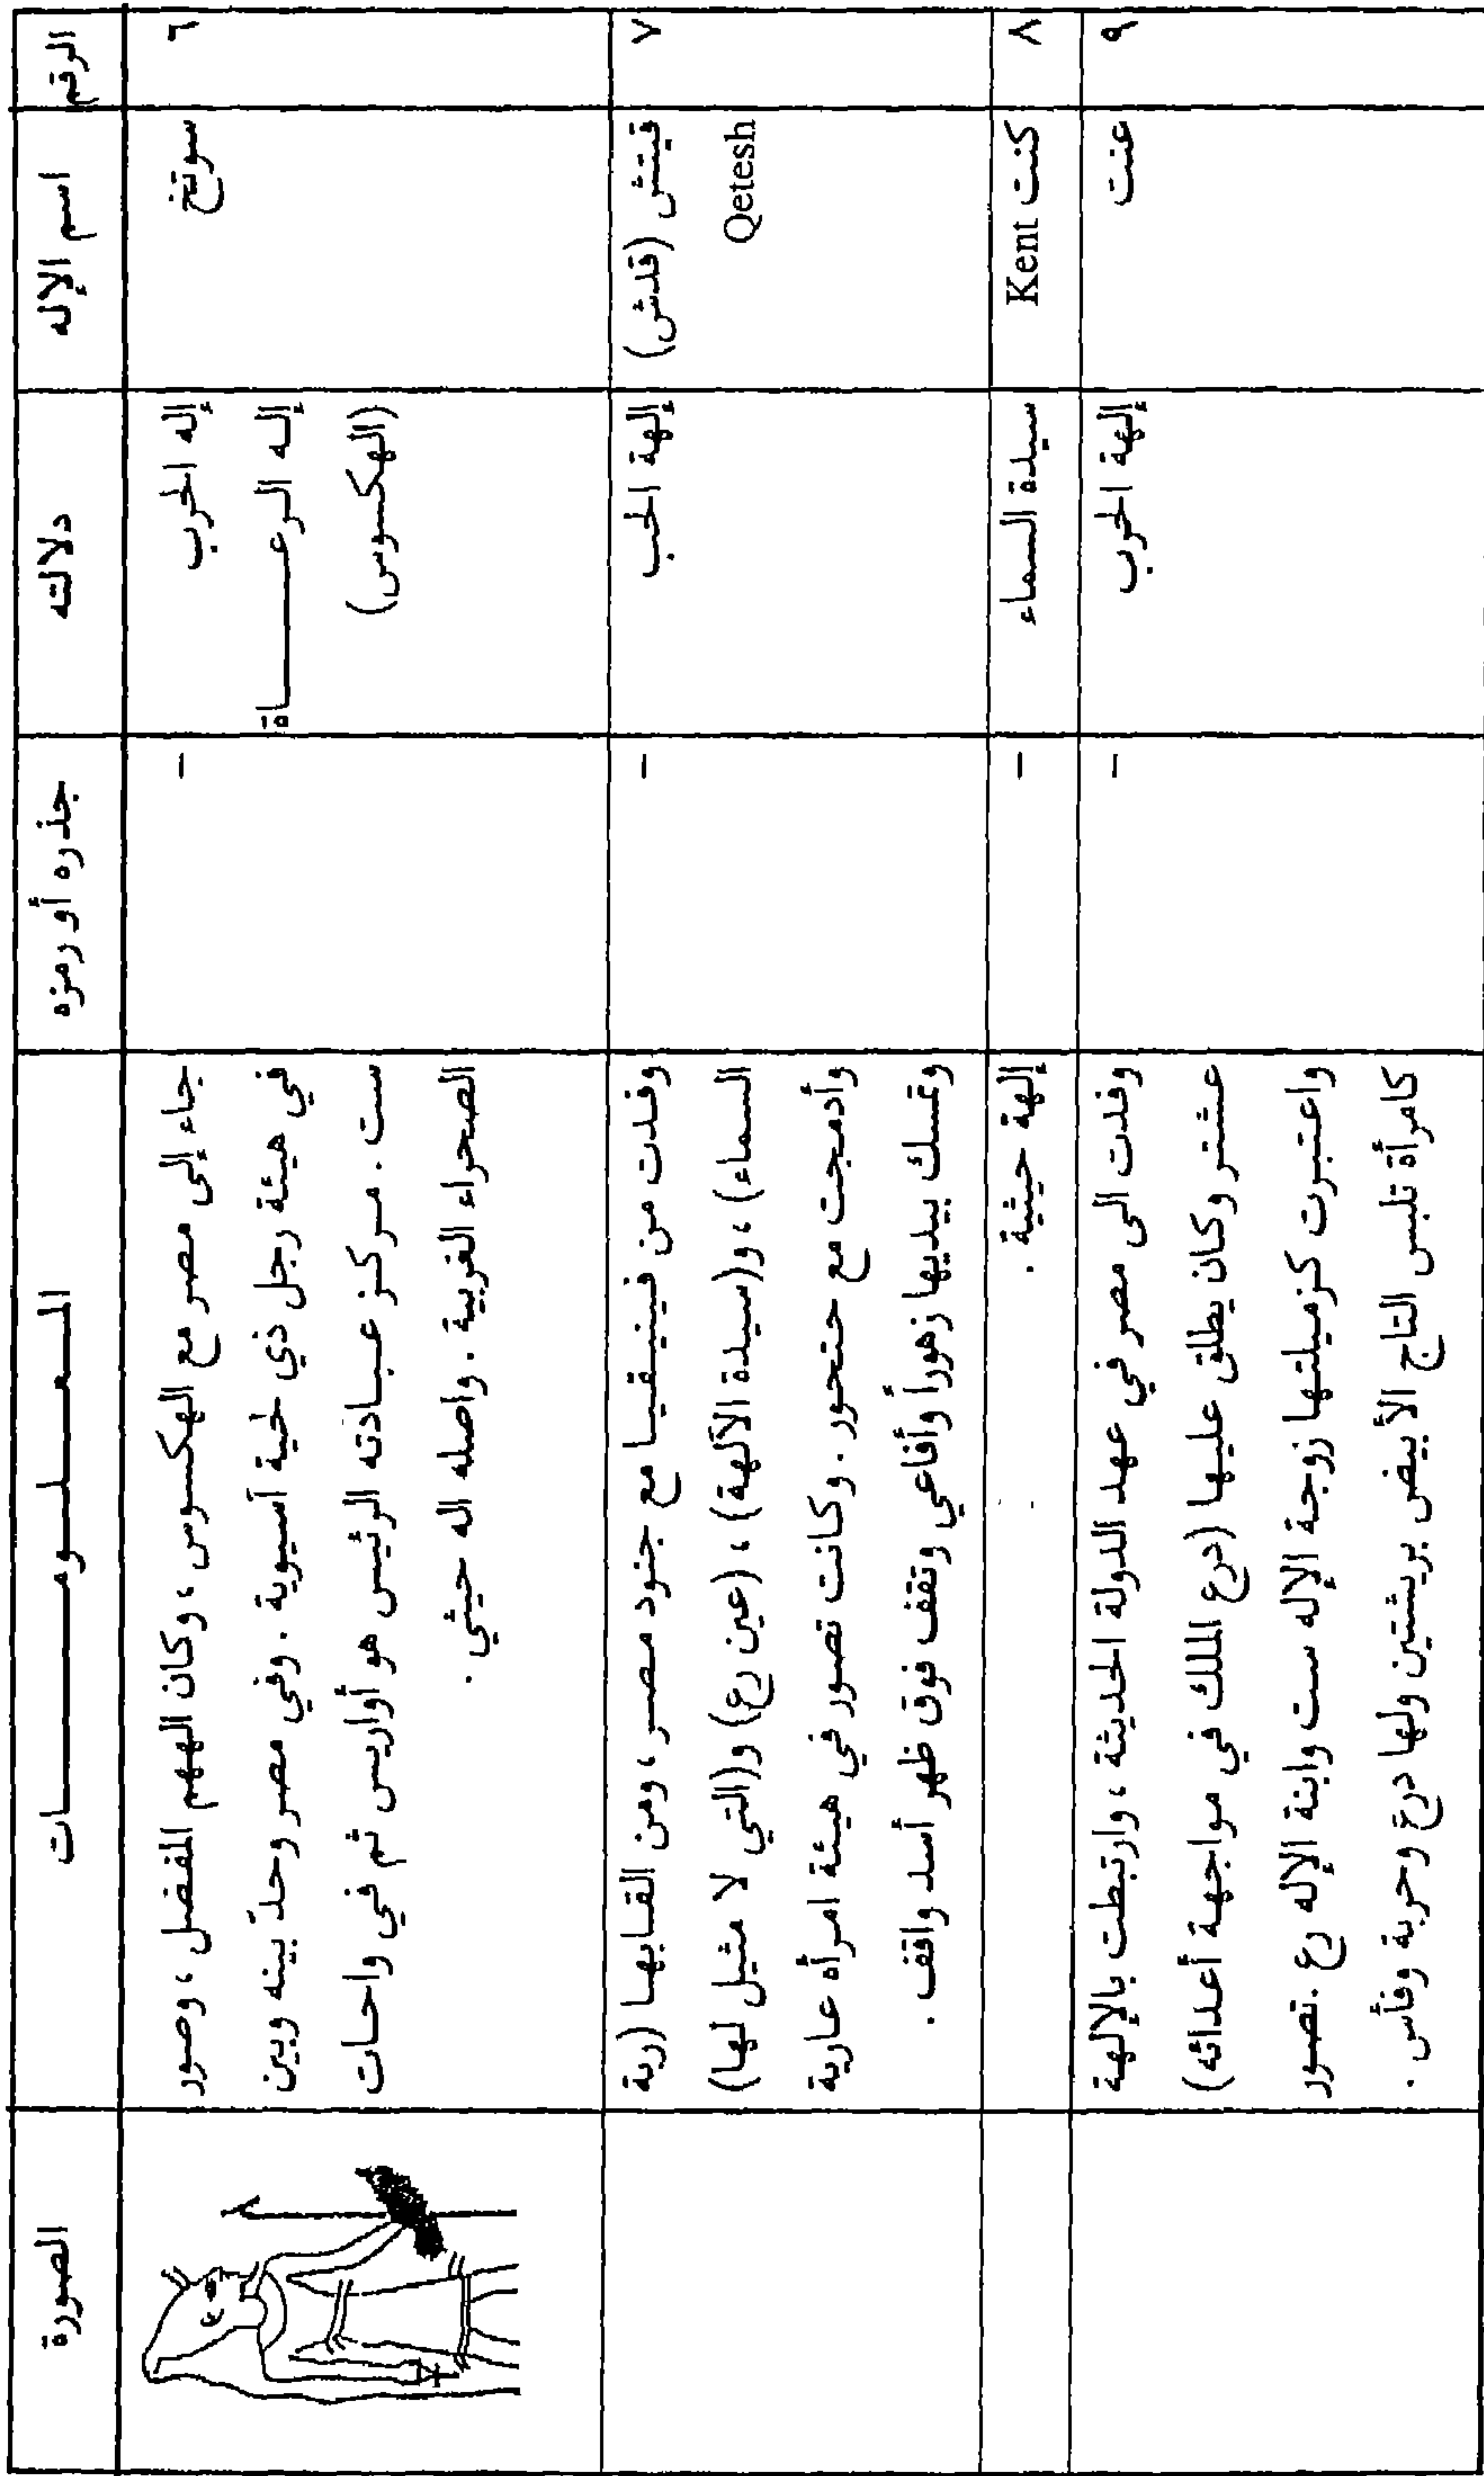 الرقم	اسم الإله	دلالته	جذره أو رمزه	المـعـلـومـــــات	الصورة
٦	سوتخ	إله الحرب	-	جاء إلى مصر مع الهكسوس ، وكان الههم المفضل ، وصور
إلـه الـرعـــــاة	في هيئة رجل ذي لحية آسيوية . وفي مصر وحدّ بينه وبين
(الهكسوس)	ست . مركز عبادته الرئيس هو أواريس ثم في واحات
الصحراء الغربية . واصله اله حيثي .
٧	قيتش (قدش)	إلهة الحب	-	وفدت من فينيقيا مع جنود مصر ، ومن القابها (ربة
Qetesh	السماء) ، و(سيدة الآلهة) ، (عين رع) و(التي لا مثيل لها)
وأدمجت مع حتحور . وكانت تصور في هيئة امرأة عارية
وتمسك بيديها زهوراً وأفاعي وتقف فوق ظهر أسد واقف .
٨	كنت Kent	سيدة السماء	-	إلهة حيثية .
٩	عنت	إلهة الحرب	-	وفدت الى مصر في عهد الدولة الحديثة ، وارتبطت بالإلهة
عشتر وكان يطلق عليها (درع الملك في مواجهة أعدائه)
واعتبرت كزميلتها زوجة الإله ست وابنة الإله رع . تصور
كامرأة تلبس التاج الأبيض بريشتين ولها درع وحربة وفأس .